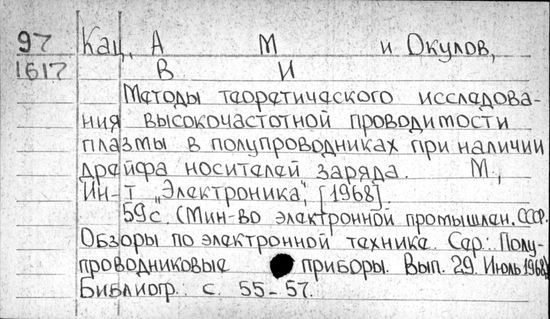 97 Кац, А М и Окулов,
1617 В И
Методы теоретического исследова-
ния высокочастотной проводимости
плазмы в полупроводниках при наличии
дрейфа носителей заряда. М.,
Ин-т „Электроника", [1968].
59с. (Мин-во электронной промышлен. СССР.
Обзоры по электронной технике. Сер.: Полу-
проводниковые приборы. Вып. 29. Июль 1968)
Библиогр.: с. 55-57.